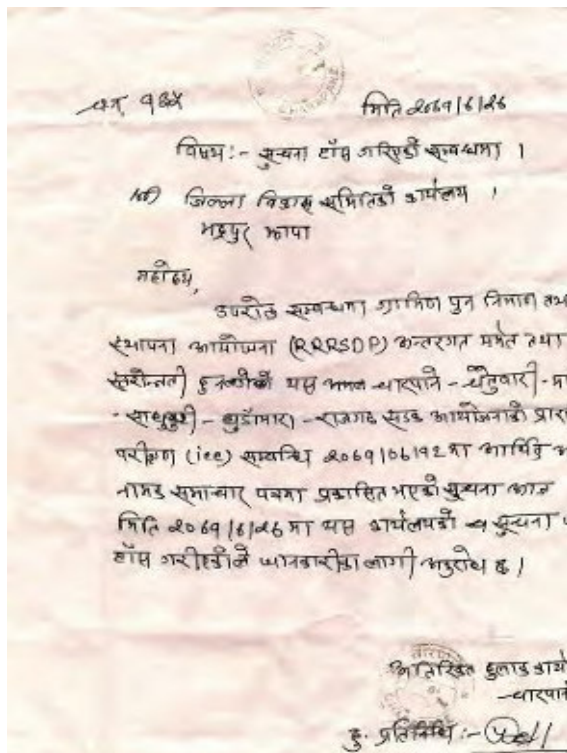 मिति २०६९/६/२६
विषय :- सुचना टाँस गरिएको सम्बन्धमा ।
श्री जिल्ला विकास समितिको कार्यालय ।
भद्रपुर झापा
महोदय,
उपरोक्त सम्बन्धमा ग्रामिण पुन निर्माण तथ
स्थापना आयोजना (RRRSDP) अन्तरगत मर्मत तथा
स्तरोन्नती हुन यस चारपाने - चैतुवारी -
- राजगढ सडक आयोजनाको प्रार
परिक्षण (iee) सम्बन्धि २०६९/०६/१२ मा आर्थिक अ
नामक समाचार पत्रमा प्रकासित भएको सुचना आज
मिति २०६९/६/२६ मा यस कार्यलयको सुचना प
टाँस गरीएकोले जानकारीका लागी अनुरोध छ ।
अतिरिक्त हुलाक कार्या
- चारपाने
हु. प्रतिनिधि :-